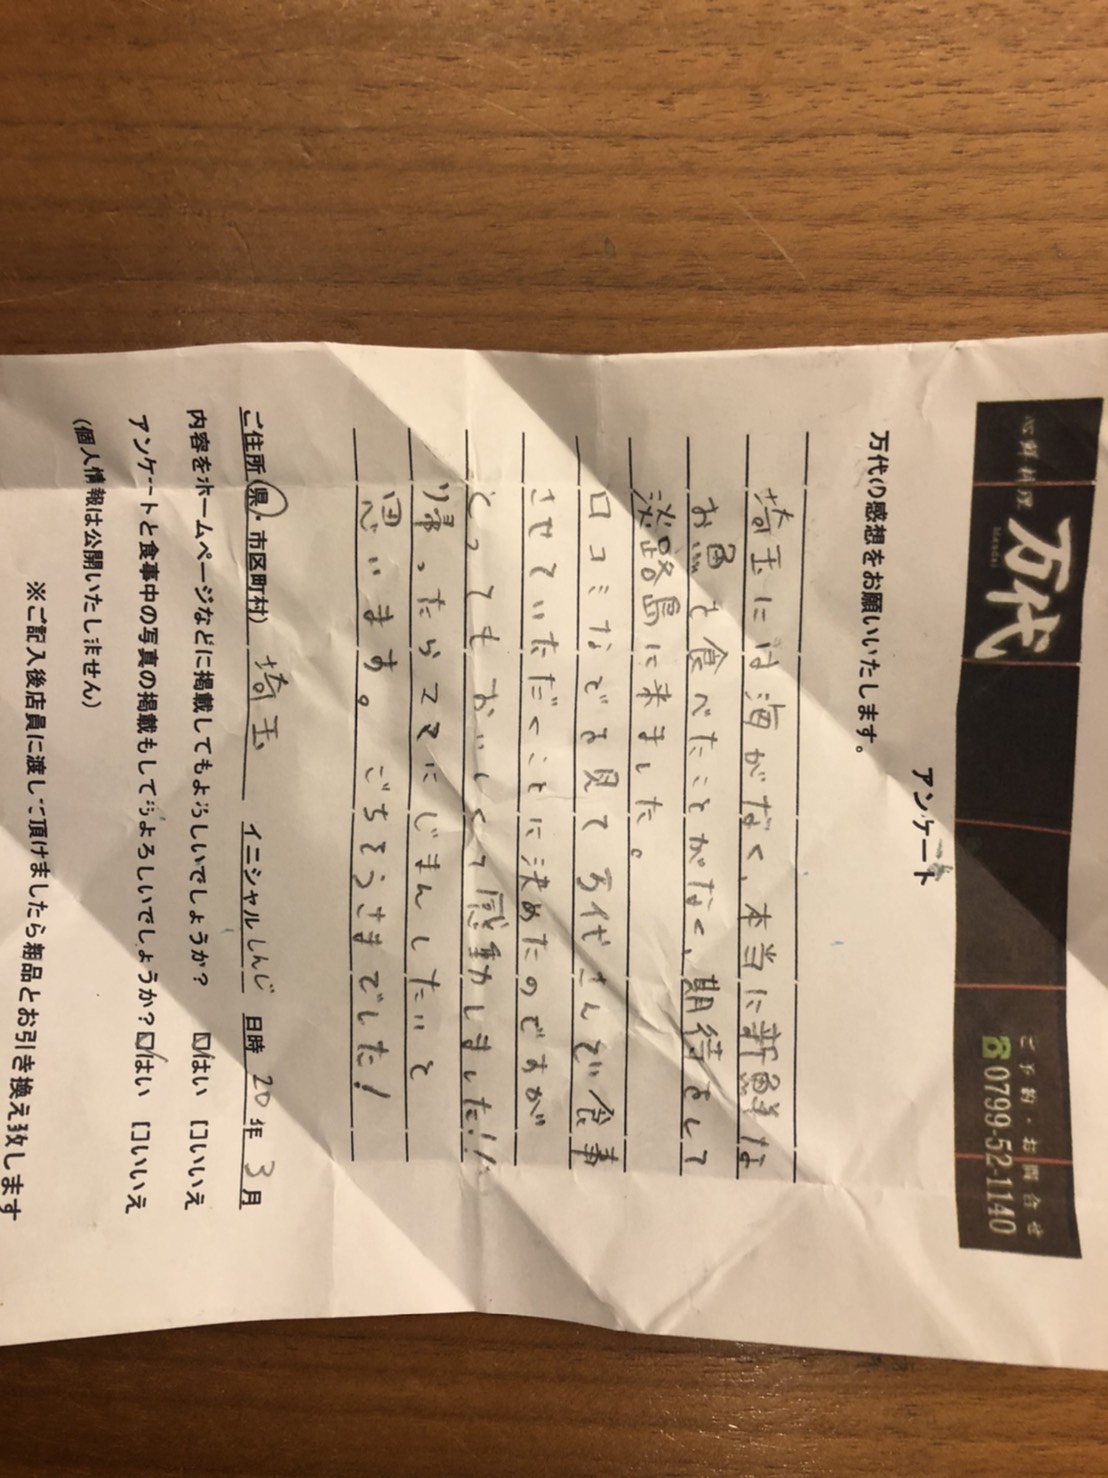 心鮮料理
万代
Mandai
ご予約・お問合せ
☎0799-52-1140
アンケート
万代の感想をお願いいたします。
埼玉には海がなく、本当に新鮮な
お魚を食べたことがなく、期待をして
淡路島に来ました。
口コミなどを見て万代さんで食事
させていただくことに決めたのですが
とってもおいしくて感動しました!!
帰ったらママにじまんしたいと
思います。ごちそうさまでした!
ご住所(県・市区町村) 埼玉 イニシャル しんじ 日時 20年 3月
内容をホームページなどに掲載してもよろしいでしょうか? ☑はい □いいえ
アンケートと食事中の写真の掲載もしてもよろしいでしょうか? ☑はい □いいえ
(個人情報は公開いたしません)
※ご記入後店員に渡して頂けましたら粗品とお引き換え致します